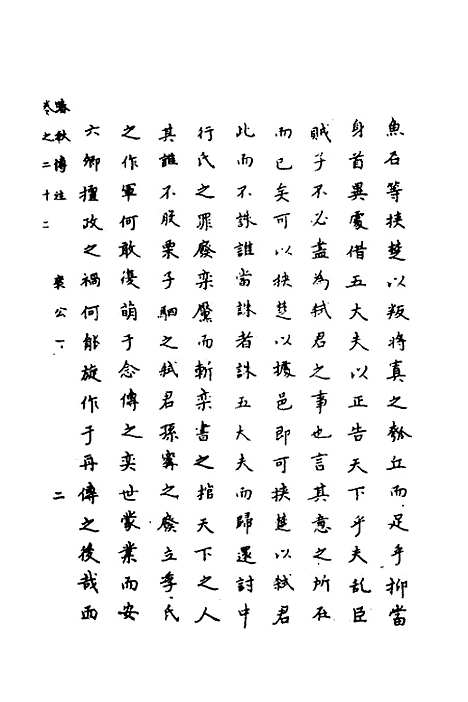 魚石等挾楚以叛將真之瓠丘而足乎抑當
身首異處借五大夫以正告天下乎夫亂臣
賊子不必盡為弒君之事也言其意之所在
而已矣可以挾楚以據邑即可挾楚以弒君
此而不誅誰當誅者誅五大夫而歸還討中
行氏之罪廢欒黶而斬欒書之棺天下之人
其誰不股栗子駟之弒君孫甯之廢立季氏
之作軍何敢復萌于念傳之奕世蒙業而安
六卿擅政之禍何能旋作于再傳之後哉而
春秋傳註
卷之二十二 襄公一 二